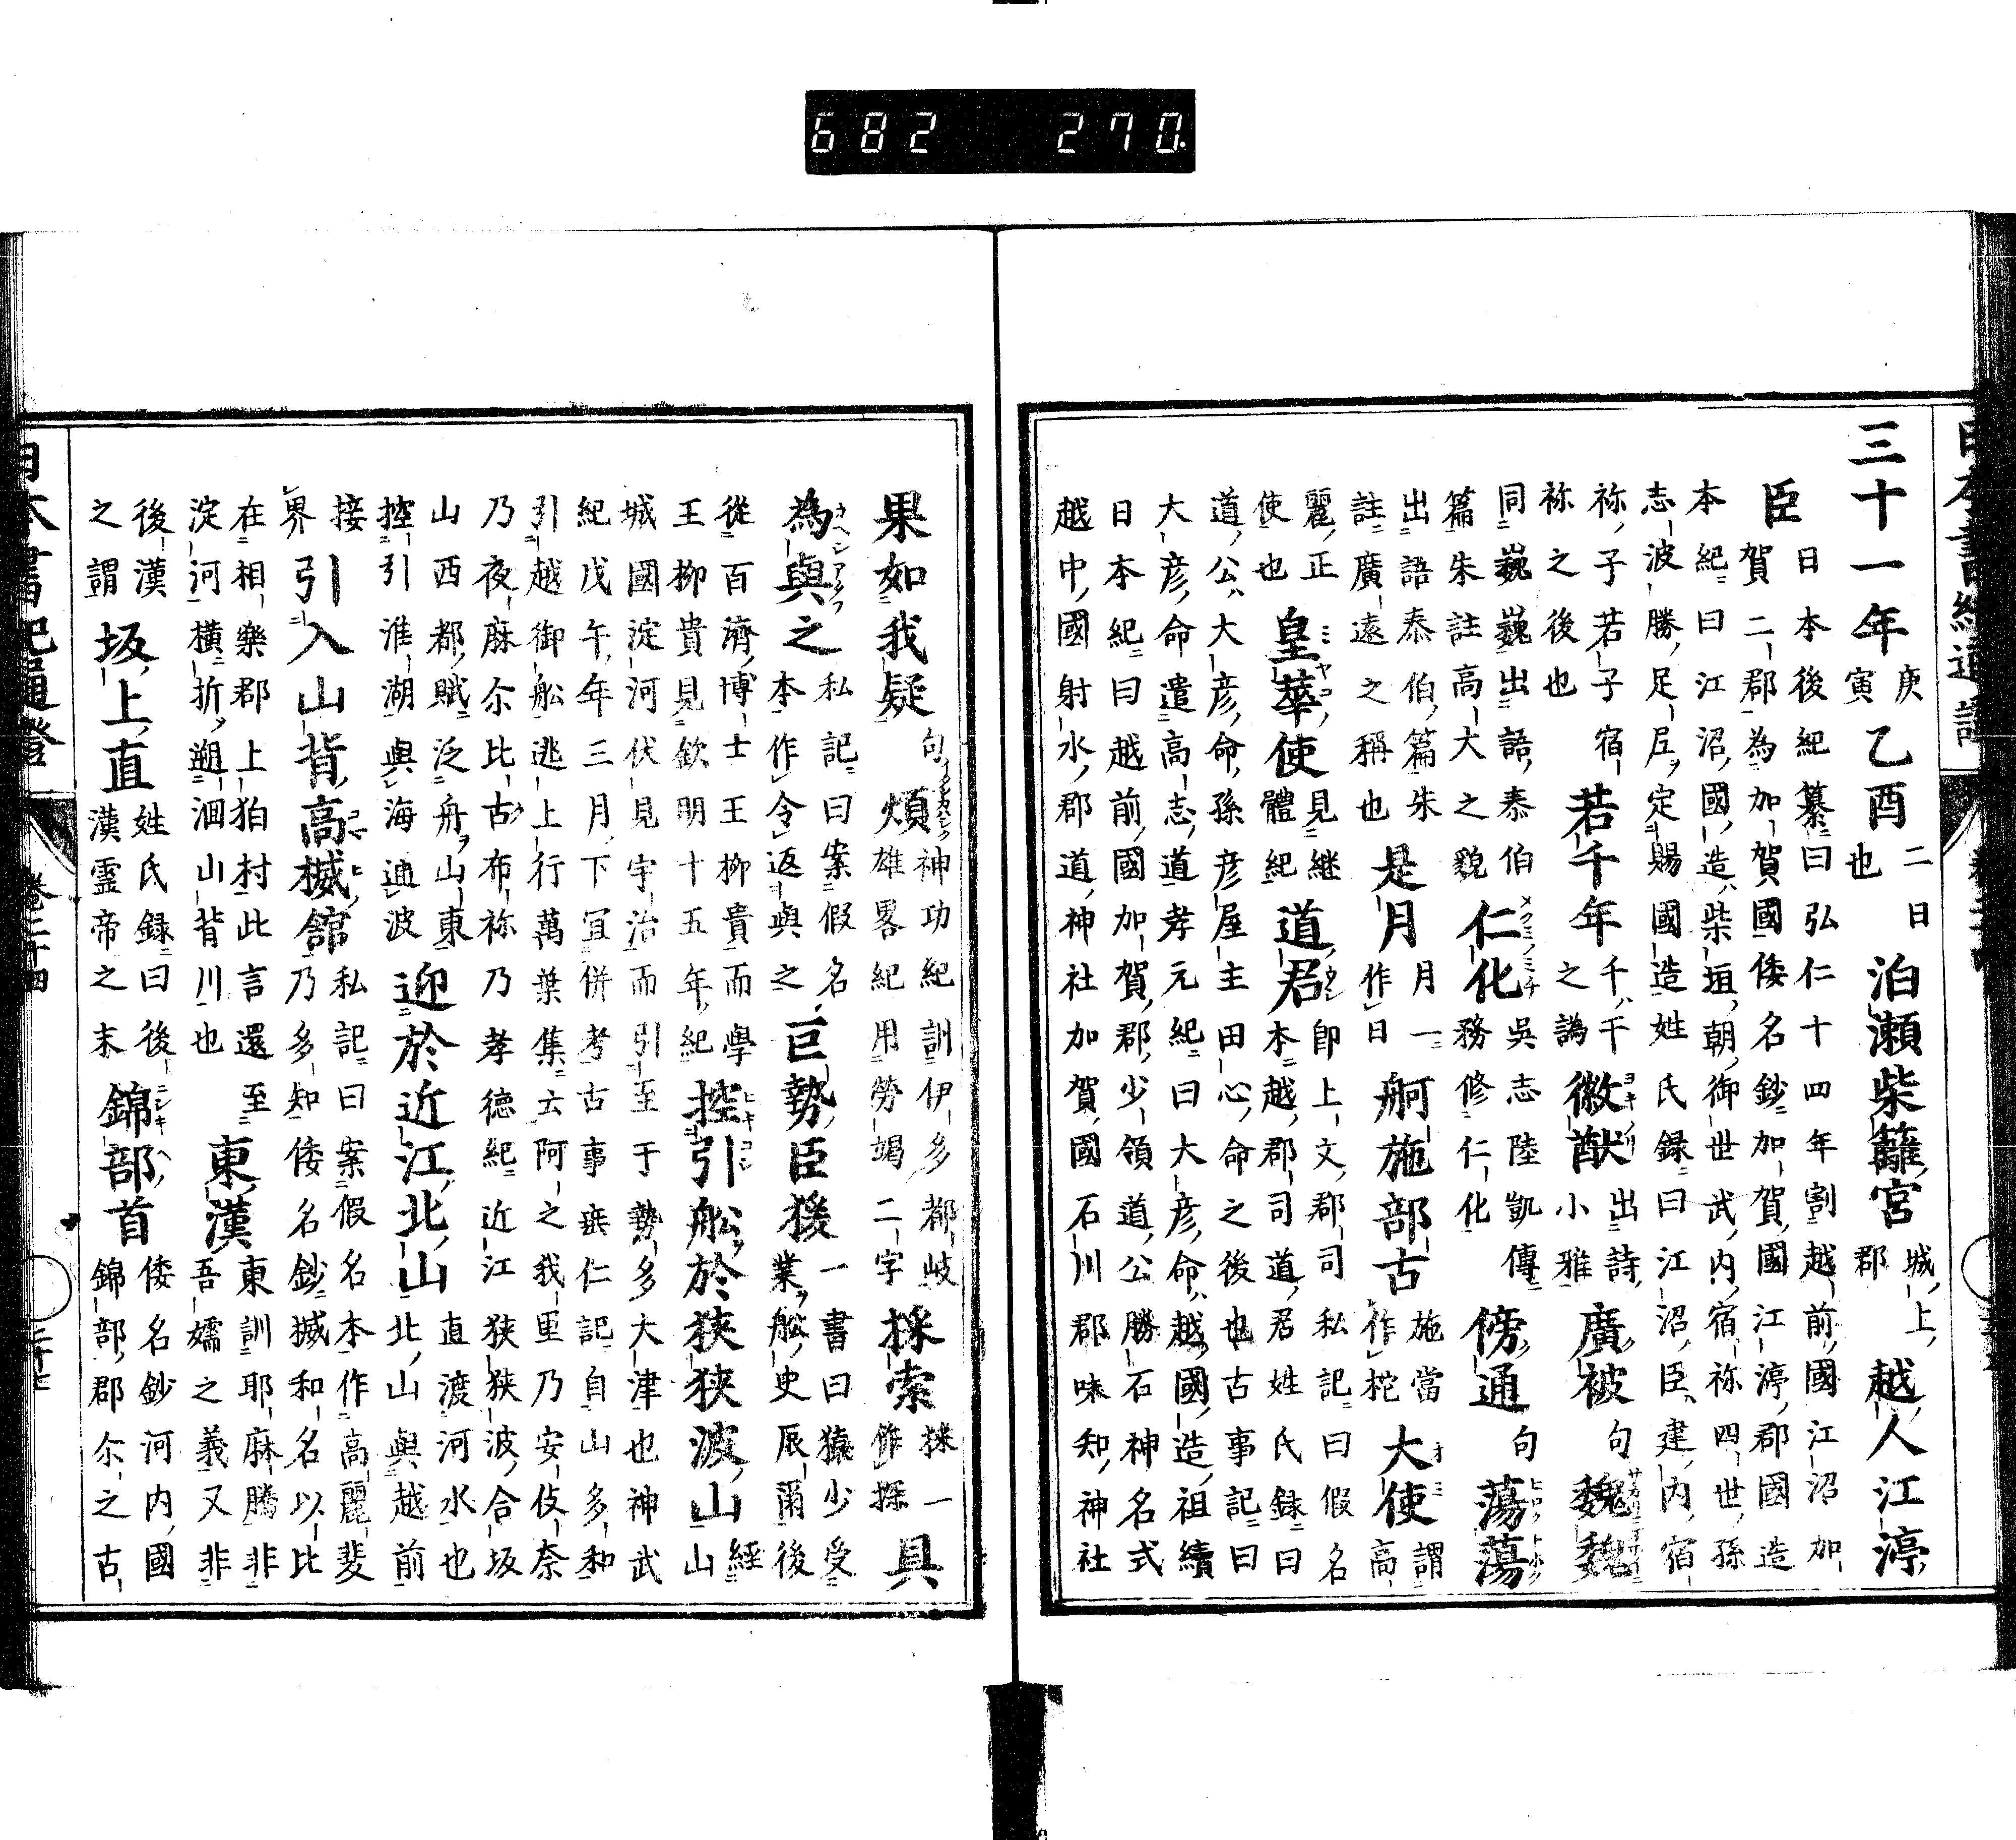 三十一年庚寅乙酉二日也泊瀨柴籬宮城上郡越人江渟
臣日本後紀纂曰弘仁十四年割越前國江沼加
賀二郡為加賀國倭名鈔加賀國江渟郡國造
本紀曰江沼國造柴垣朝御世武內宿祢四世孫
志波勝足尼定賜國造姓氏録曰江沼臣建內宿
祢子若子宿祢之後也若千年千干之譌徽猷出詩小雅廣被句魏魏
同巍巍出語泰伯篇朱註高大之貌仁化吳志陸凱傳務修仁化傍通句蕩蕩
出語泰伯篇朱註廣遠之稱也是月月一作日舸施部古施當作柁大使謂高
麗正使也皇華使見継體紀道君即上文郡司私記曰假名
本越郡司道君姓氏録曰
道公大彦命孫彦屋主田心命之後也古事記曰
大彦命遣高志道孝元紀曰大彦命越國造祖續
日本紀曰越前國加賀郡少領道公勝石神名式
越中國射水郡道神社加賀國石川郡味知神社
果如我疑句煩神功紀訓伊多都岐雄畧紀用勞竭二字採索採一作探具
為與之私記曰案假名本作令返與之巨勢臣猨一書曰猿少受業舩史辰爾後
從百濟博士王柳貴而學王柳貴見欽明十五年紀控引舩於狹狹波山經山
城國淀河伏見宇治而引至于勢多大津也神武
紀戊午年三月下宜併考古事埀仁記自山多和
引越御舩逃上行萬葉集云阿之我里乃安伎奈
乃夜麻尒比古布祢乃孝徳紀近江狹狹波合坂
山西都賦泛舟山東控引淮湖與海通波迎於近江北山直渡河水也北山與越前
接界引入山背高楲館私記曰案假名本作高麗斐乃多知倭名鈔楲和名以比
在相樂郡上狛村此言還至淀河橫折遡洄山背川也東漢東訓耶麻騰非吾嬬之義又非
後漢之謂坂上直姓氏録曰後漢霊帝之末錦部首倭名鈔河內國錦部郡尒之古
682 270